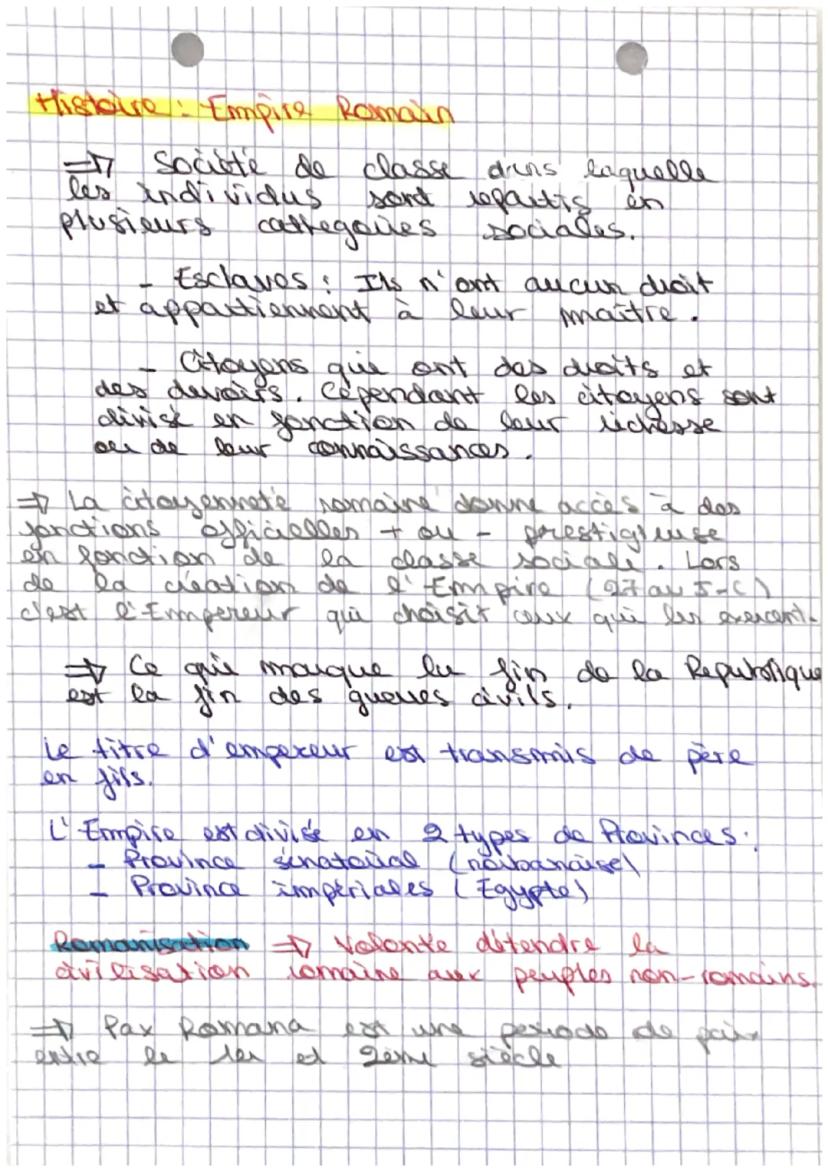 Histoire : Empire Romain
=> Société de classe dans laquelle
les individus sont repartis en
plusieurs cattegories sociales.
- Esclaves : Ils n'ont aucun droit
et appartiennent à leur maître.
- Citoyens qui ont des droits et
des devoirs. Cependant les citoyens sont
divisé en fonction de leur richesse
ou de leur connaissances.
=> La citoyenneté romaine donne accès à des
fonctions officielles + ou - prestigieuse
en fonction de la classe sociale. Lors
de la création de l'Empire (27 av J-C)
c'est l'Empereur qui choisit ceux qui les exercent.
=> Ce qui marque la fin de la Republique
est la fin des guerres civils.
Le titre d'empereur est transmis de père
en fils.
L'Empire est divisé en 2 types de Provinces :
- Province sénatorial (narbonaise)
- Province impériales (Egypte)
Romanisation => Volonté d'étendre la
civilisation romaine aux peuples non-romains.
=> Pax Romana est une periode de paix
entre le 1er et 2ème siècle